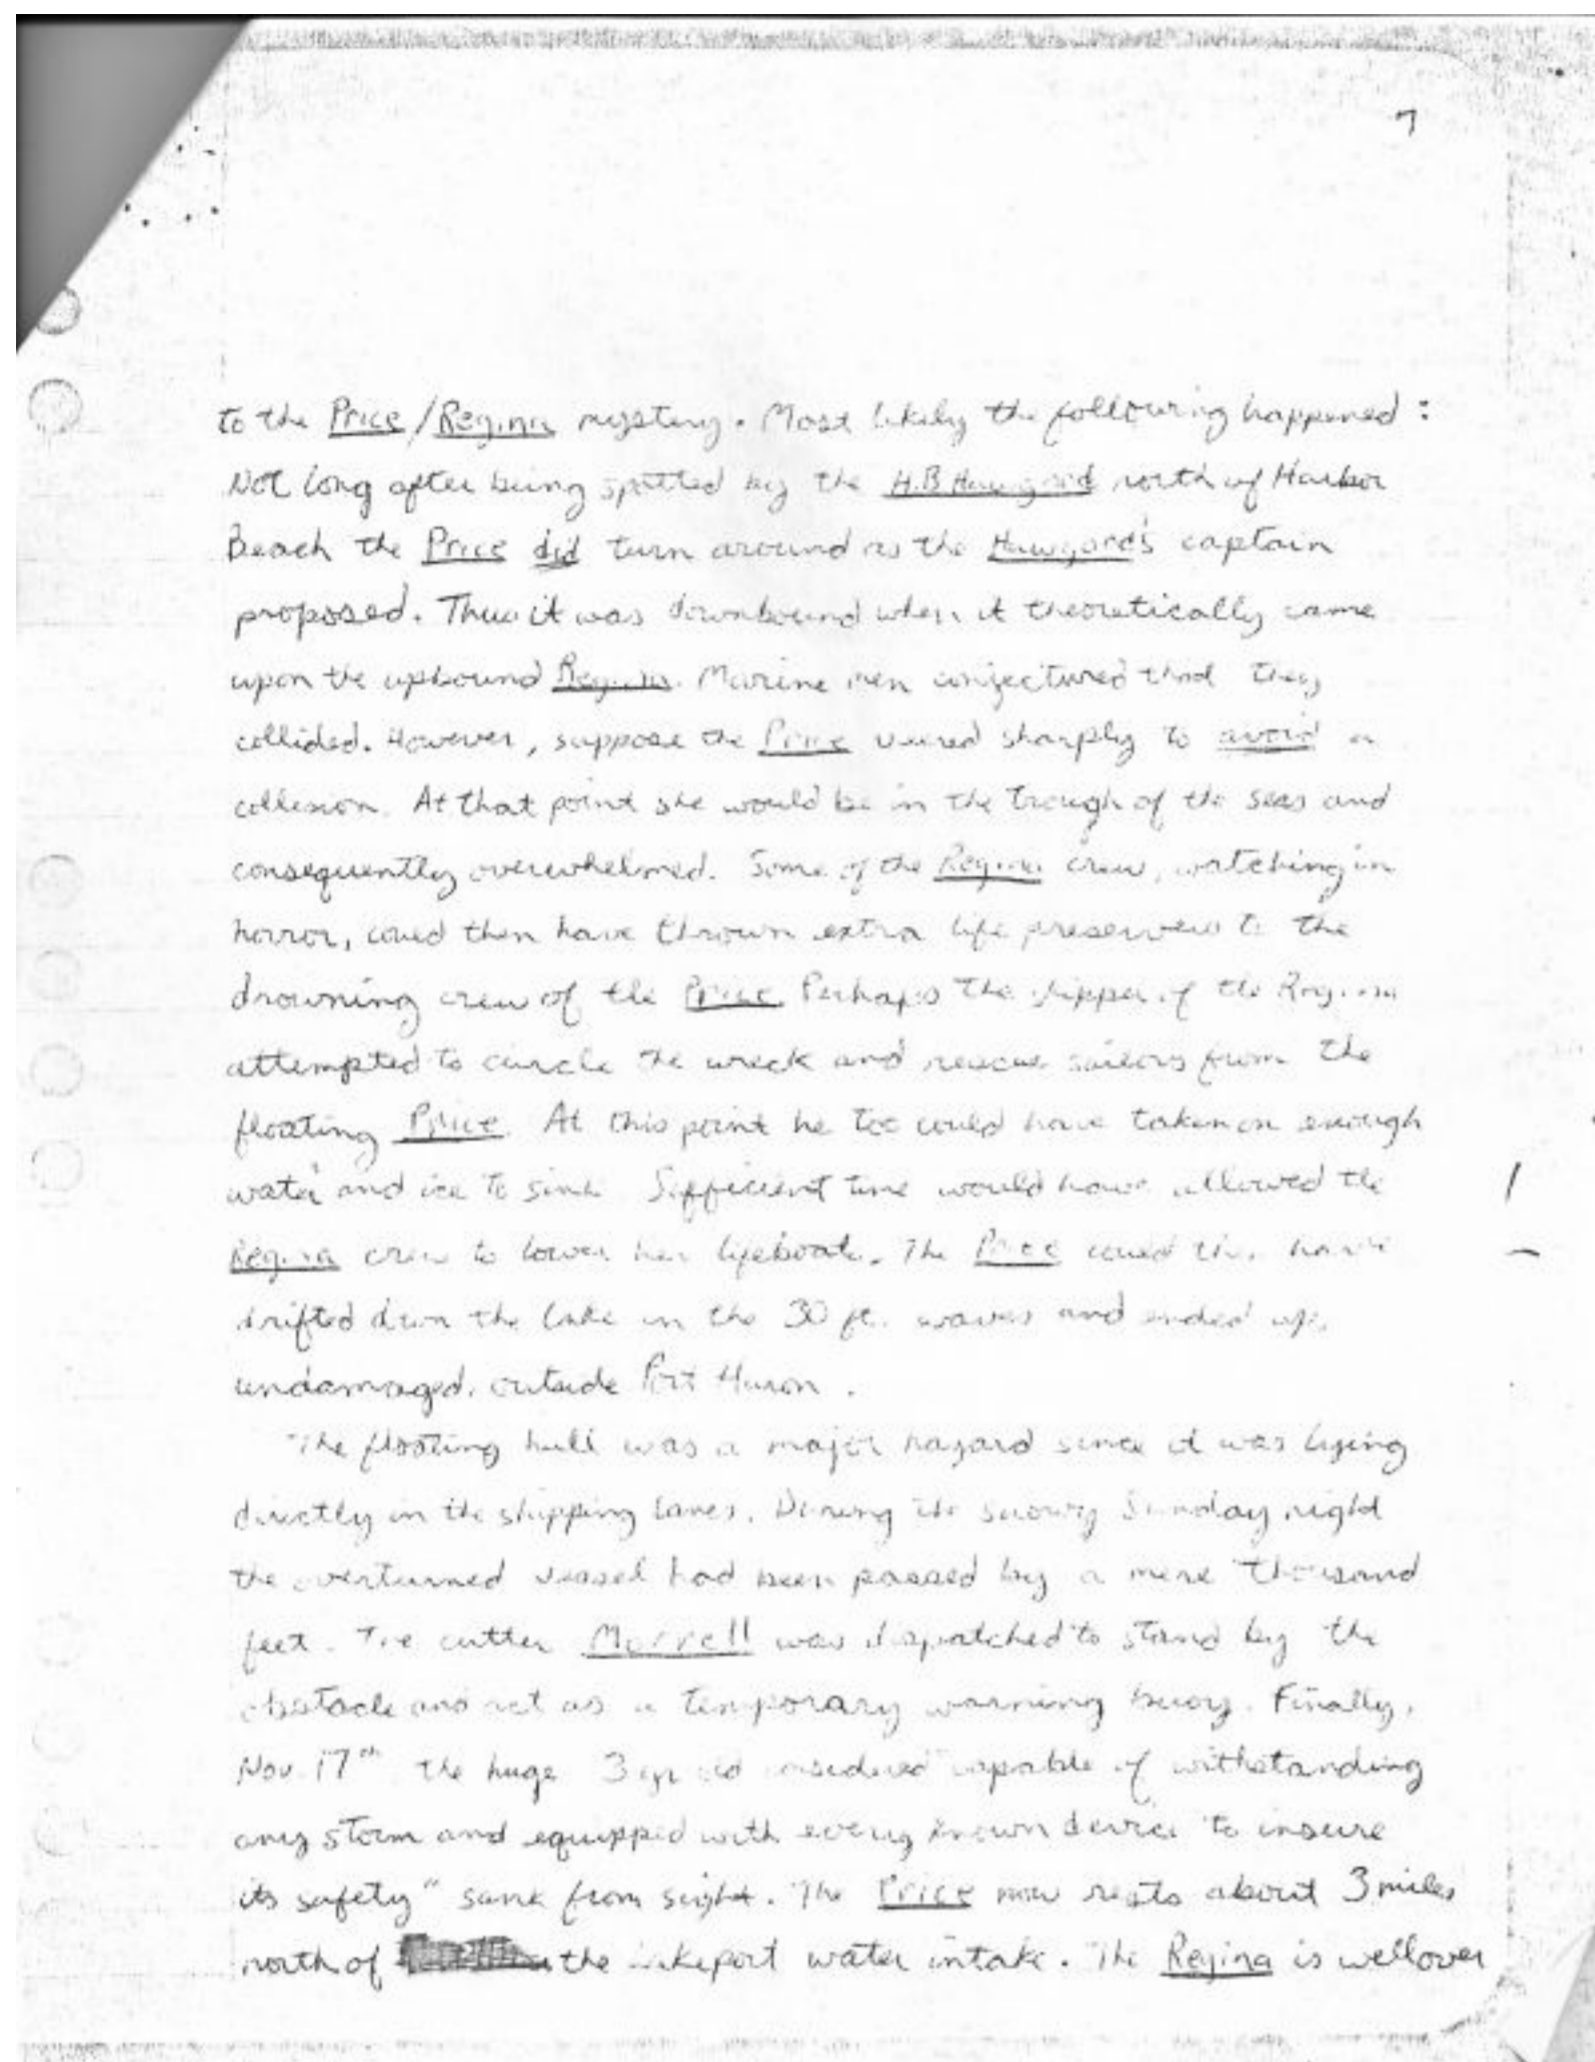 7
to the Price/Regina mystery. Most likely the following happened:
Not long after being spotted by the H.B Hawgood north of Harbor
Beach the Price did turn around as the Hawgood's captain
proposed. Thus it was downbound when it theoretically came
upon the upbound Regina. Marine men conjectured that they
collided. However, suppose the Price veered sharply to avoid a
collision. At that point she would be in the trough of the seas and
consequently overwhelmed. Some of the Regina crew, watching in
horror, could then have thrown extra life preservers to the
drowning crew of the Price. Perhaps the skipper of the Regina
attempted to circle the wreck and rescue sailors from the
floating Price. At this point he too could have taken on enough
water and ice to sink. Sufficient time would have allowed the
Regina crew to lower her lifeboat. The Price could then have
drifted down the lake in the 30 ft. waves and ended up,
undamaged, outside Port Huron.
The floating hull was a major hazard since it was lying
directly in the shipping lanes. During the snowy Sunday night
the overturned vessel had been passed by a mere thousand
feet. The cutter Morrell was dispatched to stand by the
obstacle and act as a temporary warning buoy. Finally,
Nov. 17th the huge 3 yr old considered capable of withstanding
any storm and equipped with every known device to insure
its safety" sank from sight. The Price now rests about 3 miles
north of the Lakeport water intake. The Regina is well over